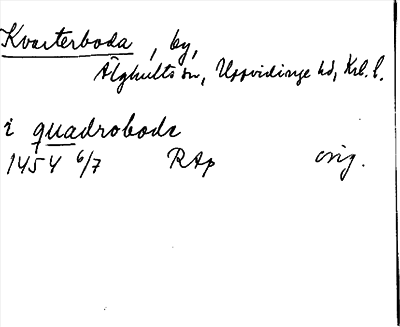 Kvarterboda, by,
Älghults sn, Uppvidinge hd, Krl. l.
i quadroboda
1454 6/7 RAp orig.